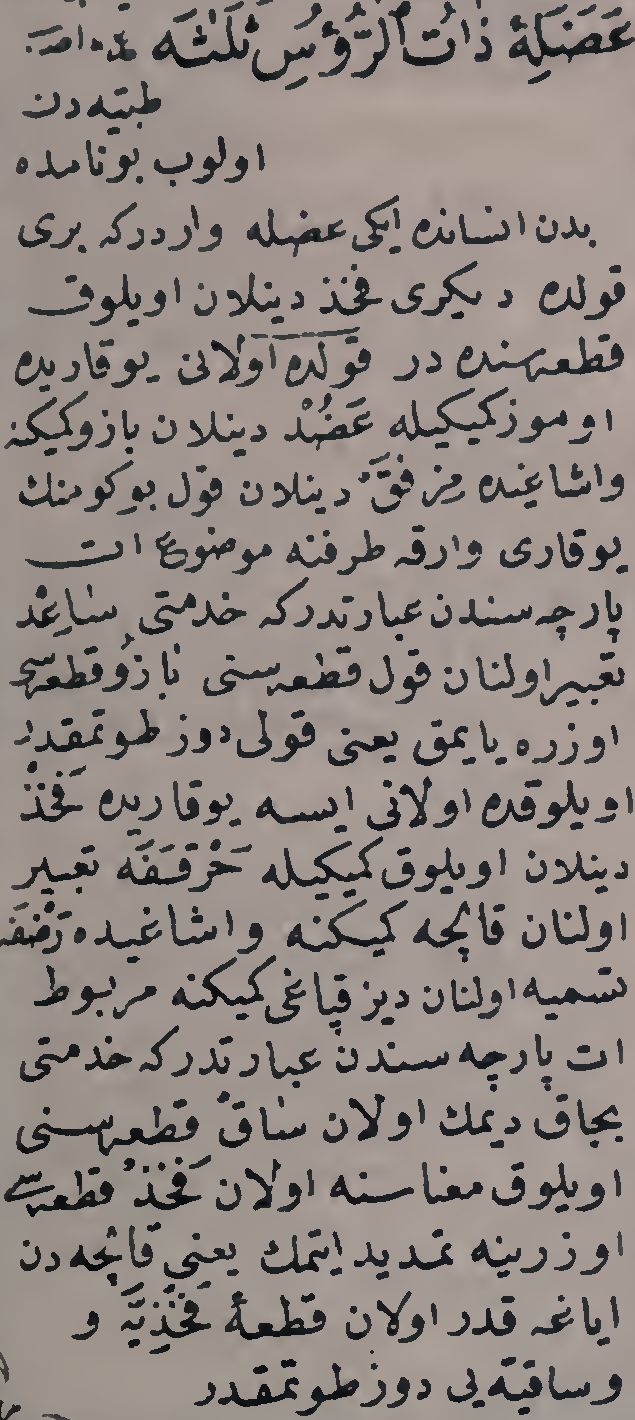 عَضَلَهٔ ذَاتُ الرُّؤُسِ ثَلٰثَه
طبيه دن
اولوب بونامده
بدن انسانده ايكى عضله واردركه برى
قولده ديكرى فخذ دينلان اويلوق
قطعه سنده در قولده اولانى يوقاريده
اوموز كميكيله عَضُدْ دينلان بازو كميكنه
واشاغيده مِرْفَقْ دينلان قول بوكومنك
يوقارى وارقه طرفنه موضوع ات
پارچه سندن عبارتدركه خدمتى سَاعِدْ
تعبير اولنان قول قطعه سنى بَازُو قطعه سى
اوزره يايمق يعنى قولى دوز طوتمقدر
اويلوقده اولانى ايسه يوقاريده فَخْذْ
دينلان اويلوق كميكيله حَرْقَفَه تعبير
اولنان قالچه كميكنه واشاغيده رَضْفَه
تسميه اولنان ديز قپاغى كميكنه مربوط
ات پارچه سندن عبارتدركه خدمتى
بجاق ديمك اولان ساق قطعه سنى
اويلوق معناسنه اولان فَخْذْ قطعه سى
اوزرينه تمديد ايتمك يعنى قالچه دن
اياغه قدر اولان قطعهٔ فَخْذِيَّه و
وساقيه يى دوز طوتمقدر